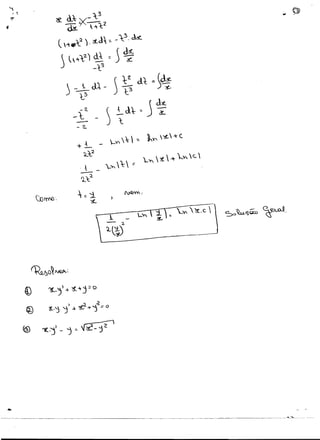 x dt/dx = -t³/(1+t²)
(1+t²). x dt = -t³. dx
∫ (1+t²)/(-t³) dt = ∫ dx/x
∫ -1/t³ dt - ∫ t²/t³ dt = ∫ dx/x
-t⁻²/-2 - ∫ 1/t dt = ∫ dx/x
+ 1/2t² - Ln|t| = Ln|x|+c
1/2t² - Ln|t| = Ln|x|+Ln|c|
Como t = y/x , vem:
1/2(y/x)² - Ln|y/x| = Ln|x.c| Solução Geral
Resolver:
① x.y' + x + y = 0
② x.y y' + x² + y² = 0
③ x y' - y = √x² - y²